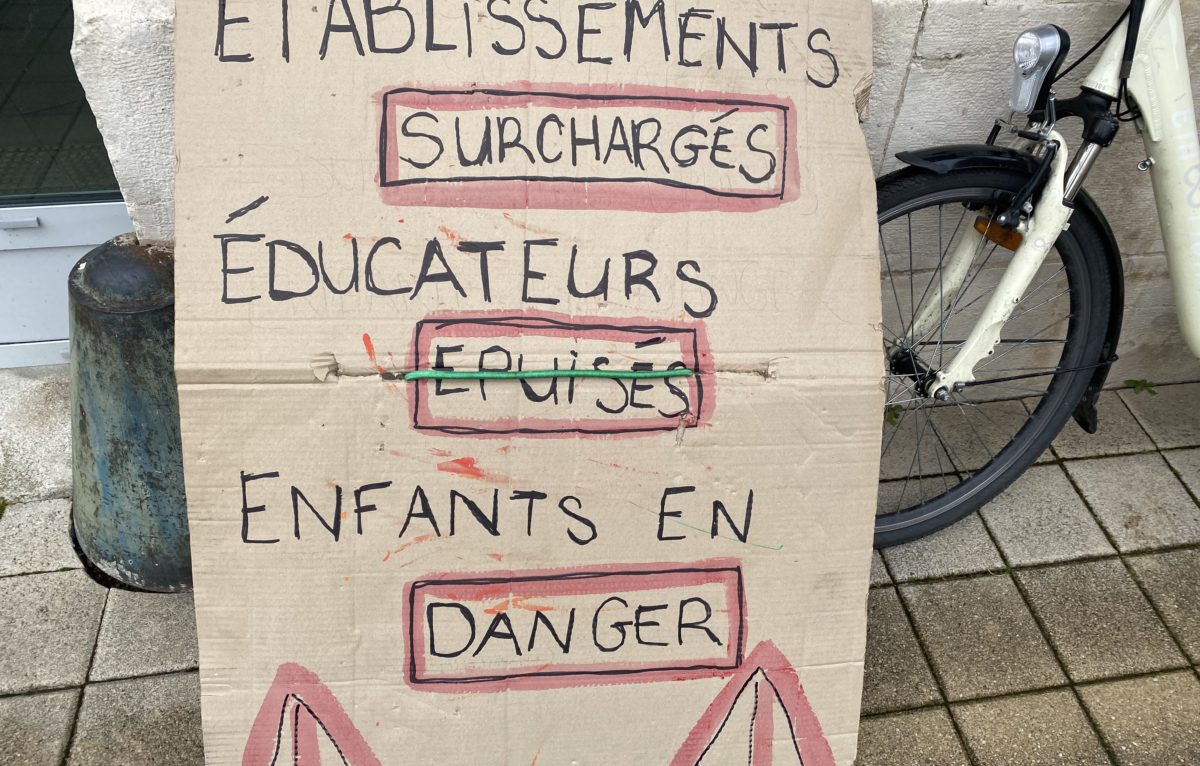 ÉTABLISSEMENTS
SURCHARGÉS
ÉDUCATEURS
EPUISÉS
ENFANTS EN
DANGER